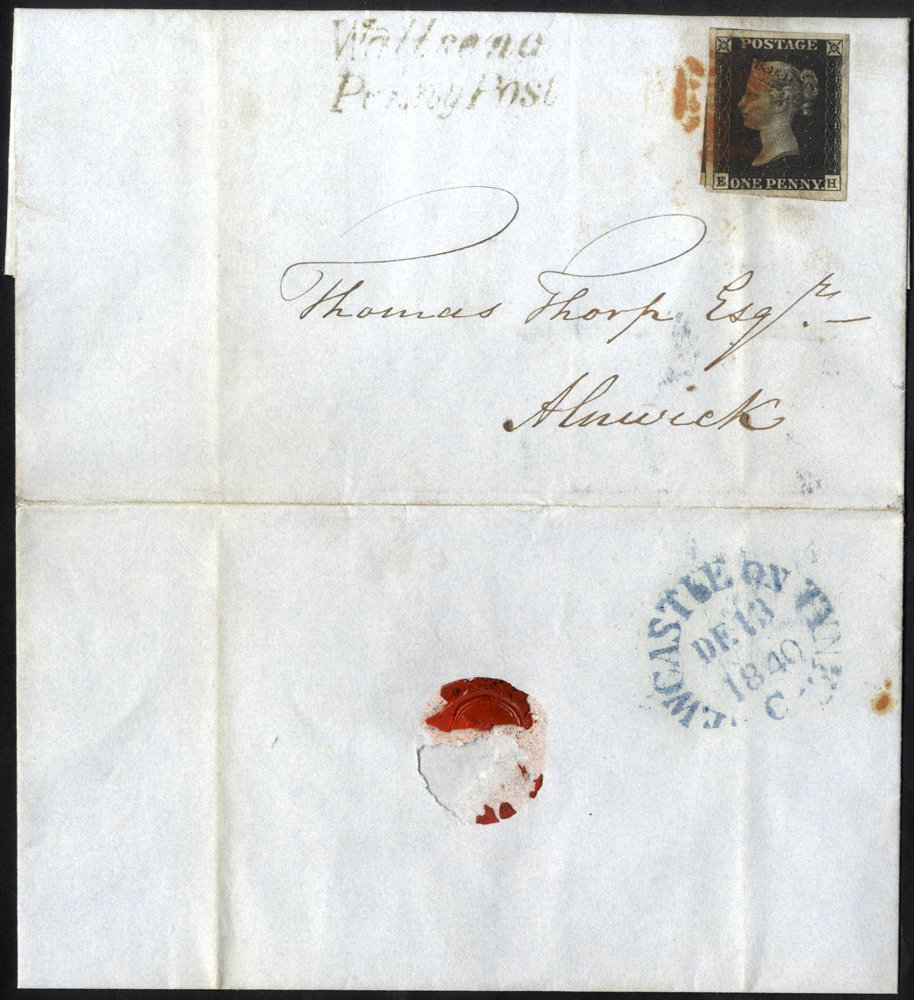 Wallsend
Penny Post
POSTAGE
E ONE PENNY H
Thomas Thorp Esqr. —
Alnwick
NEWCASTLE ON TYNE
DE 13
1840
C